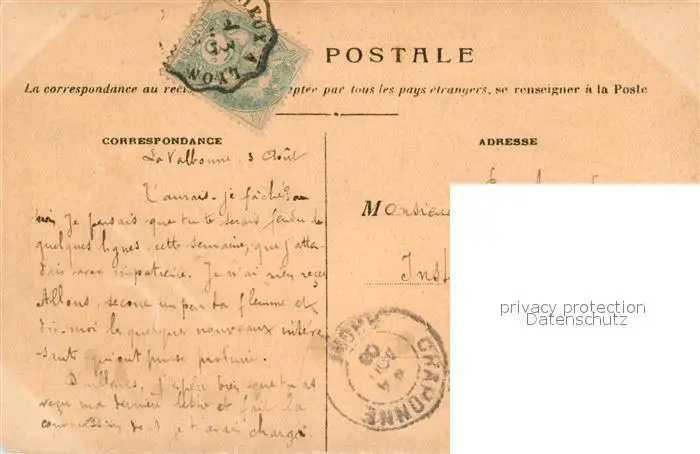 POSTALE
La correspondance au rec ptée par tous les pays étrangers, se renseigner à la Poste
CORRESPONDANCE
ADRESSE
La Valbonne, 3 Août
T'aurais-je fâché? au
Je pensais que tu te serais fendu de
quelques lignes cette semaine, que j'atten
dais avec impatience. Je n'ai rien reçu
Allons, secoue un peu ta flemme et
dis-moi les quelques nouveaux intére
-sants qu'ont
D'ailleurs, j'espère bien que tu as
reçu ma dernière lettre et fait la
commission dont je t'avais chargé.
Monsieu
Inst
LYON
CRAPONNE
privacy protection
Datenschutz